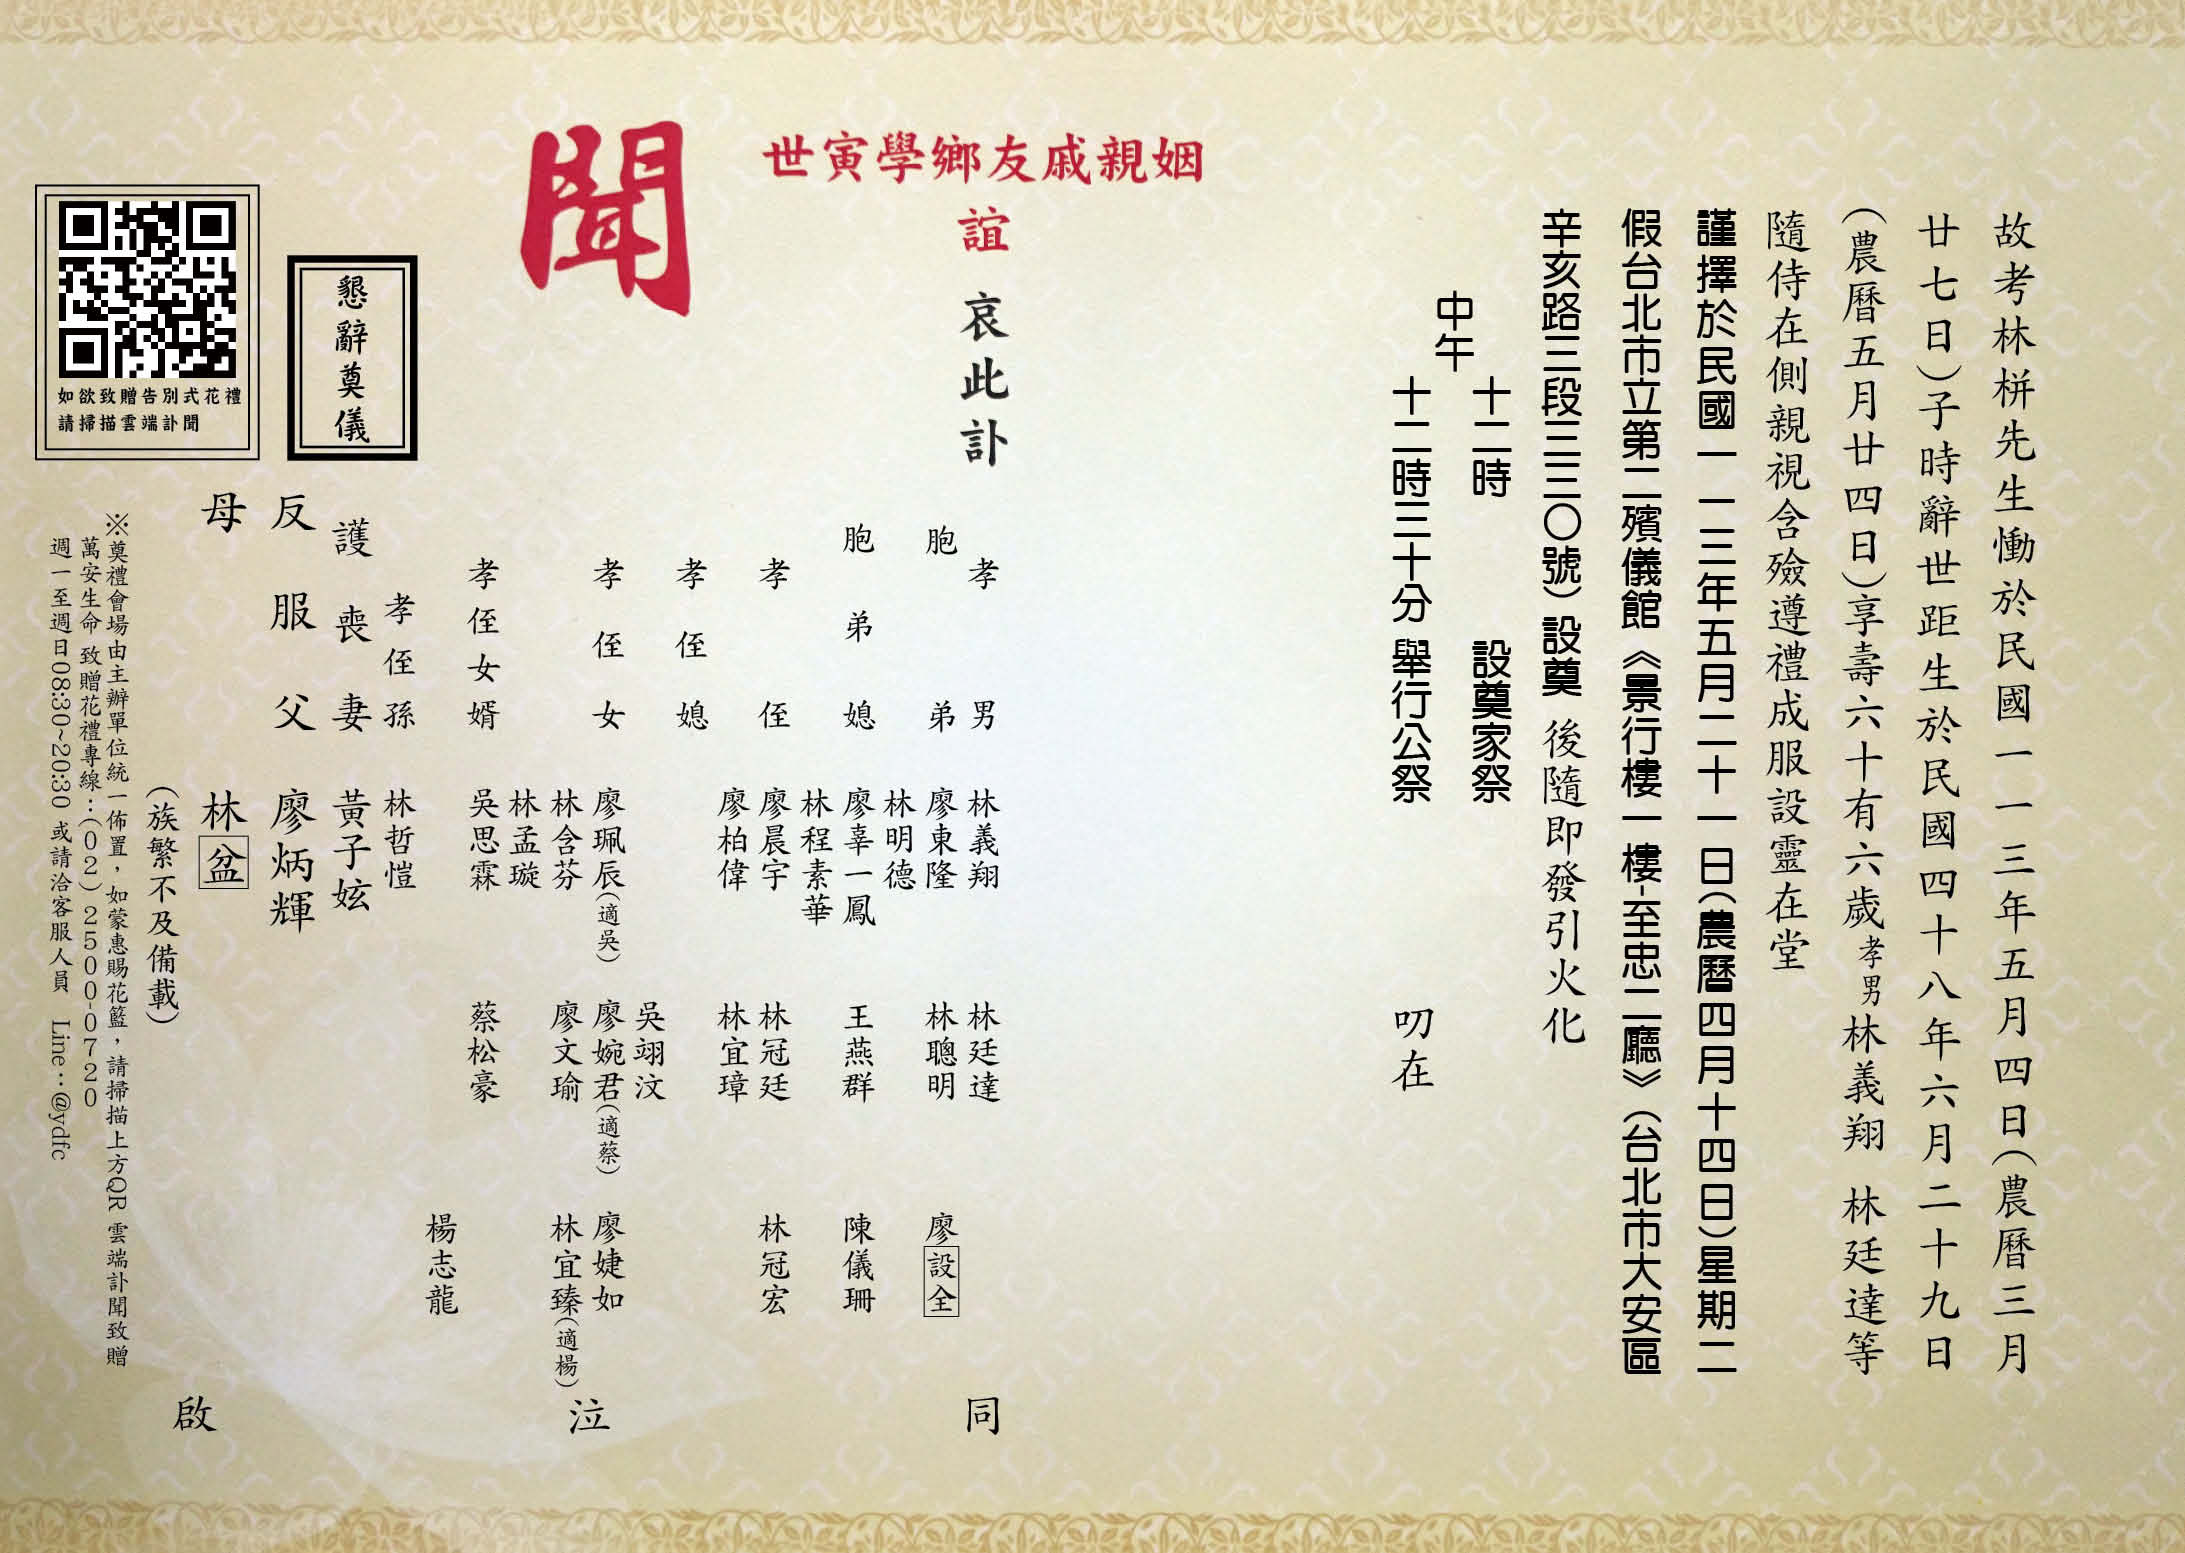 故考林栟先生慟於民國一一三年五月四日(農曆三月
廿七日)子時辭世距生於民國四十八年六月二十九日
(農曆五月廿四日)享壽六十有六歲孝男林義翔 林廷達等
隨侍在側親視含殮遵禮成服設靈在堂
謹擇於民國一一三年五月二十一日(農曆四月十四日)星期二
假台北市立第二殯儀館《景行樓一樓-至忠二廳》(台北市大安區
辛亥路三段三三〇號)設奠 後隨即發引火化
中午
十二時 設奠家祭
十二時三十分 舉行公祭 叨在
姻親戚友鄉學寅世
誼 哀此訃
聞
孝男 林義翔 林廷達
胞弟 廖東隆 林聰明 廖設全
林明德
胞弟媳 廖辜一鳳 王燕群 陳儀珊
林程素華
孝侄 廖晨宇 林冠廷 林冠宏
廖柏偉 林宜璋
孝侄媳 吳翊汶
孝侄女 廖珮辰(適吳) 廖婉君(適蔡) 廖婕如
林含芬 廖文瑜 林宜臻(適楊)
林孟璇
孝侄女婿 吳思霖 蔡松豪 楊志龍
孝侄孫 林哲愷
護喪妻 黃子妶
反服父 廖炳輝
母 林盆
(族繁不及備載)
同
泣
啟
懇辭奠儀
如欲致贈告別式花禮
請掃描雲端訃聞
※奠禮會場由主辦單位統一佈置，如蒙惠賜花籃，請掃描上方QR 雲端訃聞致贈
萬安生命 致贈花禮專線：(02)2500-0720
週一至週日08:30~20:30 或請洽客服人員 Line：@ydfc